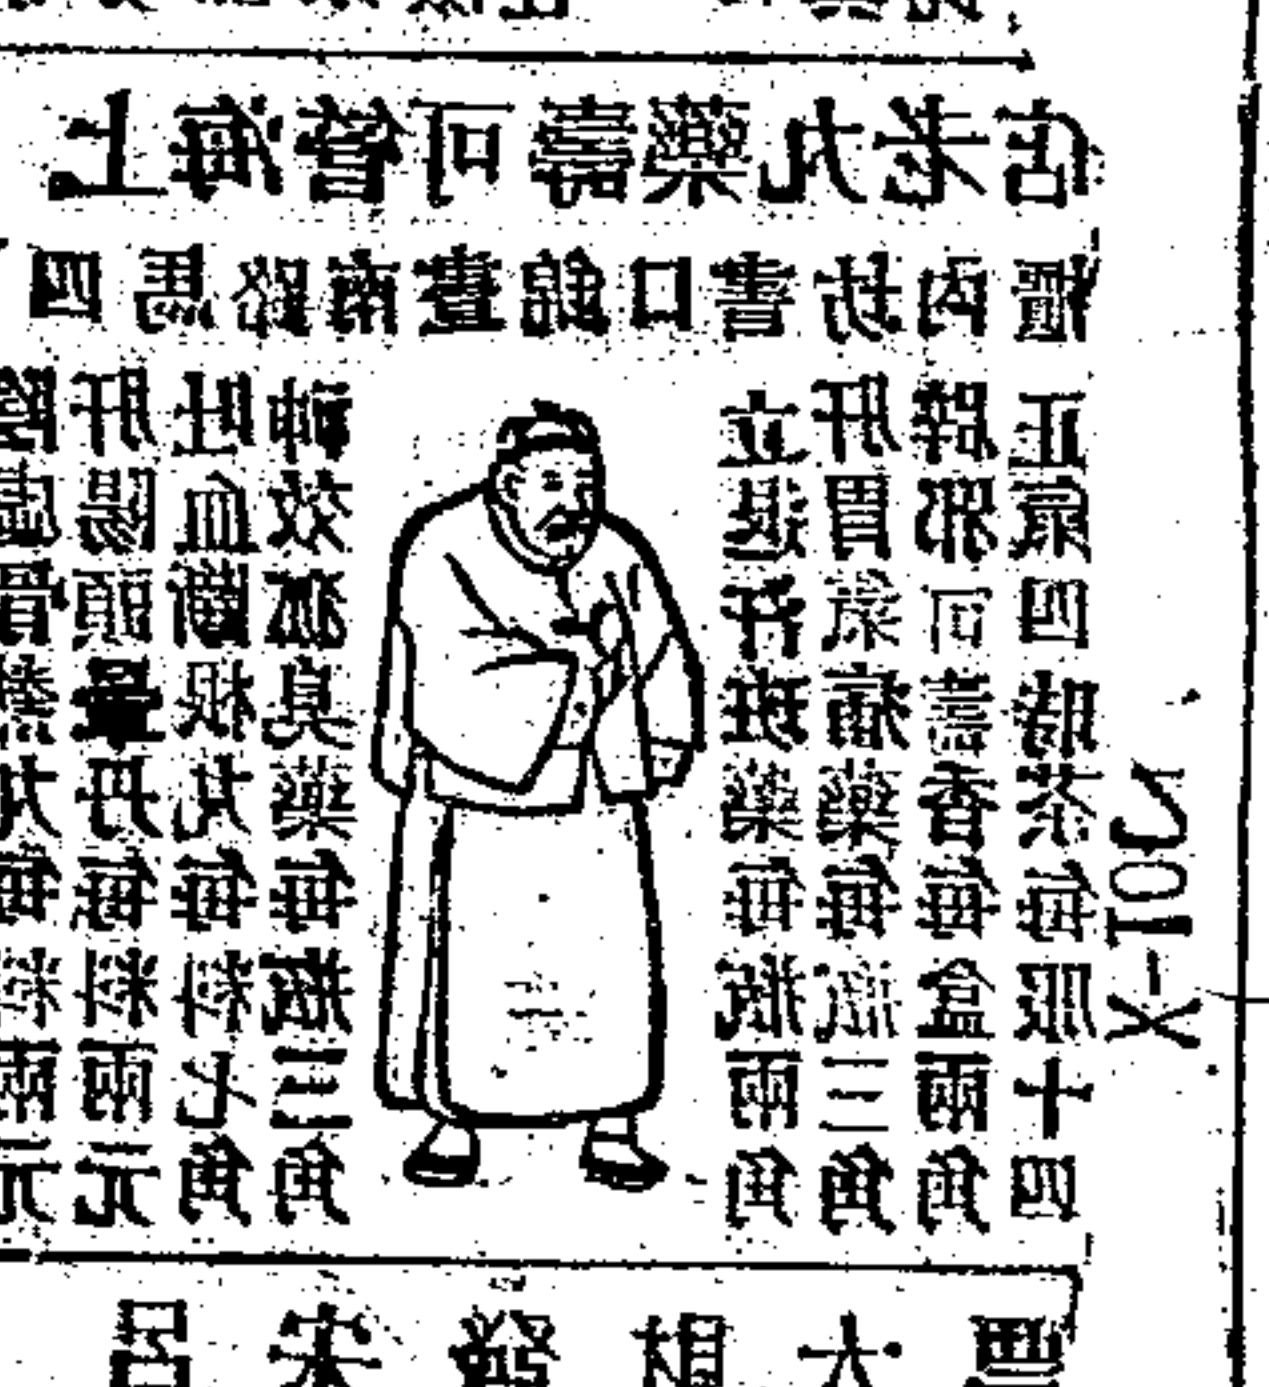 上海管可壽藥丸老店
四馬路南晝錦口書坊內櫃
陰虛骨熱丸每料兩元
肝陽頭暈丹每料兩元
吐血斷根丸每料七角
神效狐臭藥每瓶三角
立退汗斑藥每瓶兩角
肝胃氣痛藥每瓶三角
辟邪可壽香每盒兩角
正氣四時茶每服十四
呂宋發財大票